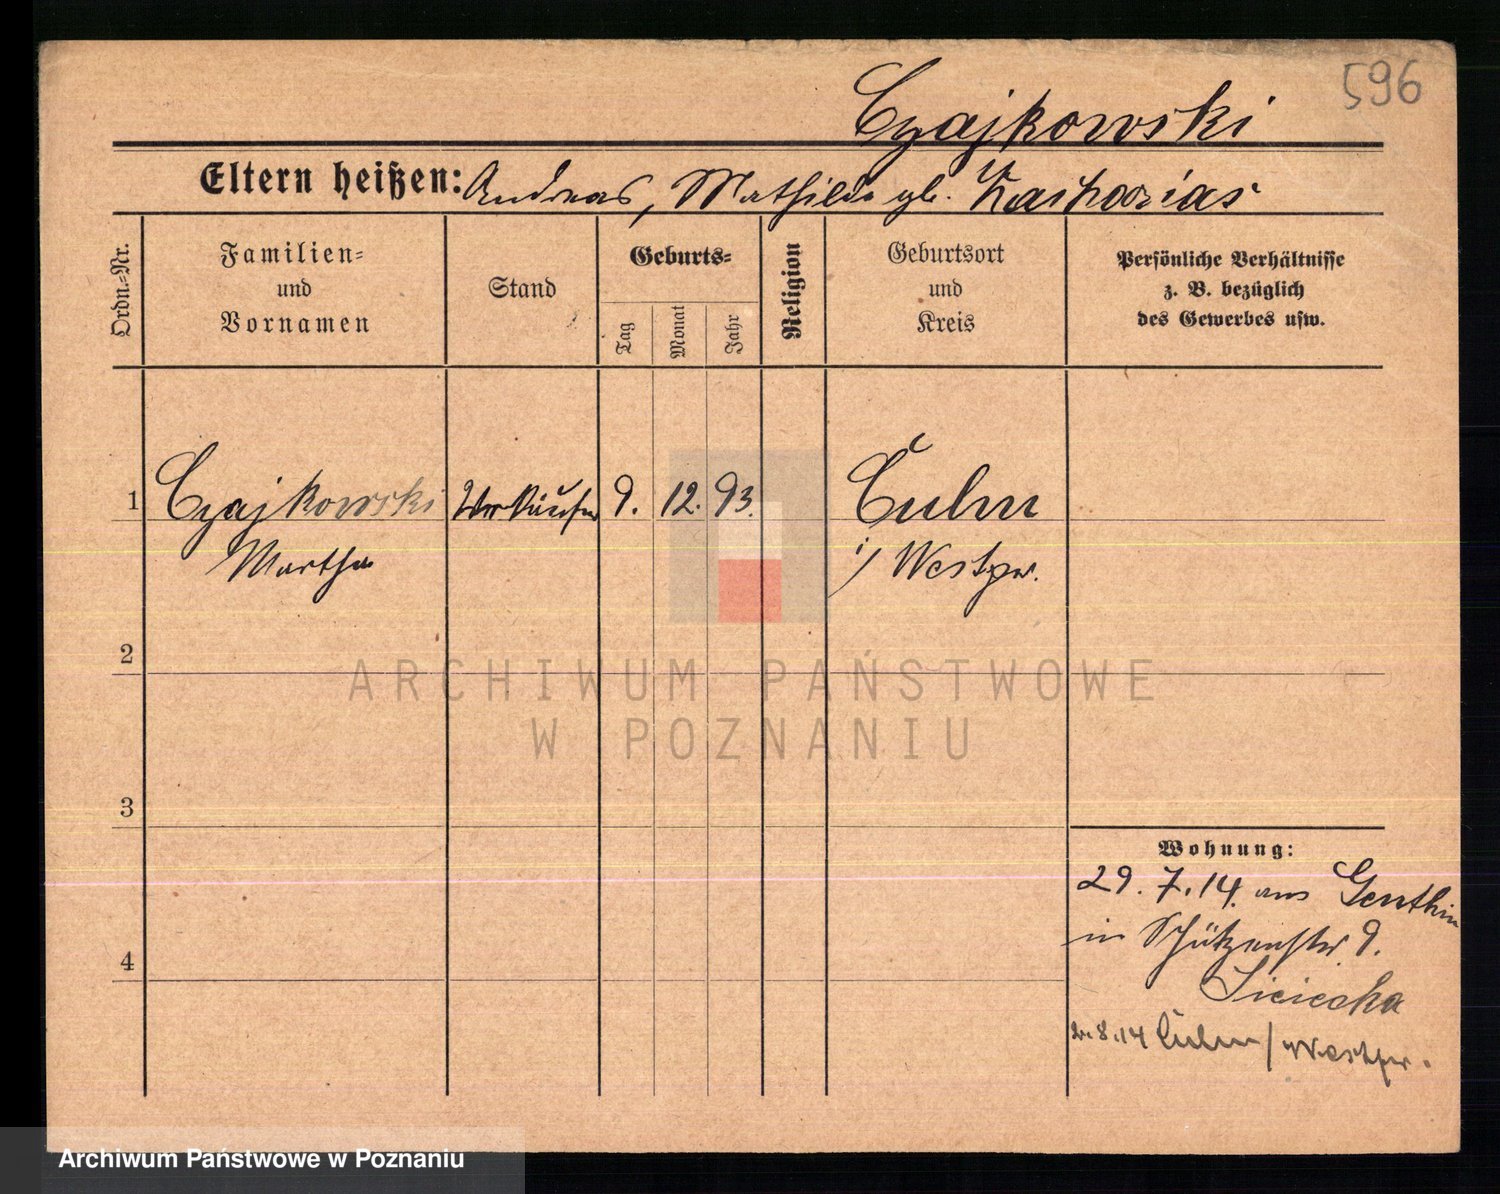 596
Czajkowski
Eltern heißen: Andreas, Mathilde gb. Zacharias
Ordn.-Nr.
Familien-
und
Vornamen
Stand
Geburts-
Tag
Monat
Jahr
Religion
Geburtsort
und
Kreis
Persönliche Verhältnisse
z. B. bezüglich
des Gewerbes usw.
1 Czajkowski 9. 12. 93. Culm
Martha i/ Westpr.
2
3
4
Wohnung:
29. 7. 14. aus Genthin
in Schützenstr. 9.
2.8.14 Culm / Westpr.
ARCHIWUM PAŃSTWOWE
W POZNANIU
Archiwum Państwowe w Poznaniu